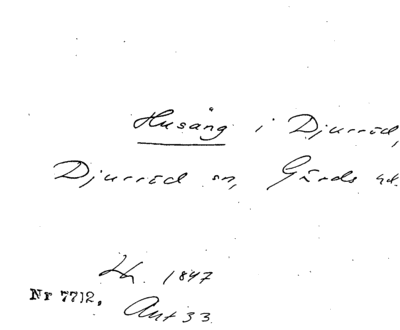 Husång i Djurröd,
Djurröd sn, Gärds hd.
Lh. 1847
Nr 7712. Ant 33